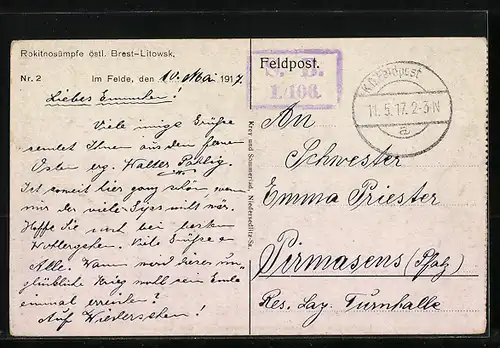 Rokitnosümpfe östl. Brest-Litowsk.
Nr. 2 Im Felde, den 10. Mai 1917.
Liebes Emmchen!
Viele innige Grüsse
sendet Ihnen aus dem fernen
Osten erg. Walter
Ist soweit hier ganz schön wenn
nur der viele nicht wär.
Hoffe Sie noch bei bestem
Wohlergehen. Viele Grüsse a
Alle. Wann wird dieser un-
glückliche Krieg wohl sein Ende
einmal erreichen?
Auf Wiedersehen!
Krey und Sommerlad, Niedersedlitz-Sa.
Feldpost.
S. B.
I./106.
K.D. Feldpost
11.5.17. 2-3N
a
An
Schwester
Emma Priester
Pirmasens (Pfalz)
Res. Laz. Turnhalle